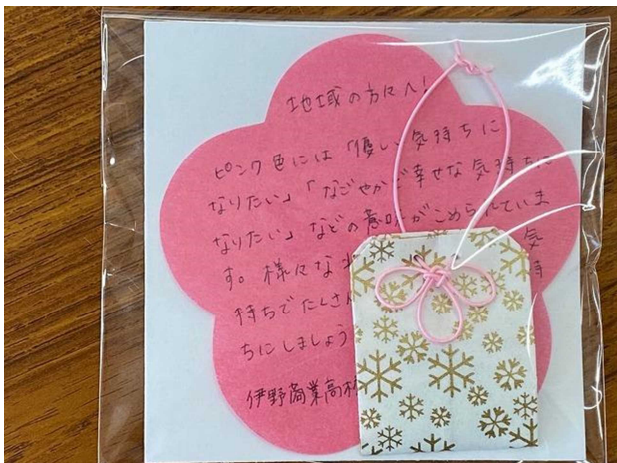 地域の方々へ!
ピンク色には「優しい気持ちに
なりたい」「なごやかで幸せな気持ちに
なりたい」などの意味がこめられていま
す。様々な 気
持ちでたくさん 持
ちにしましょう
伊野商業高校